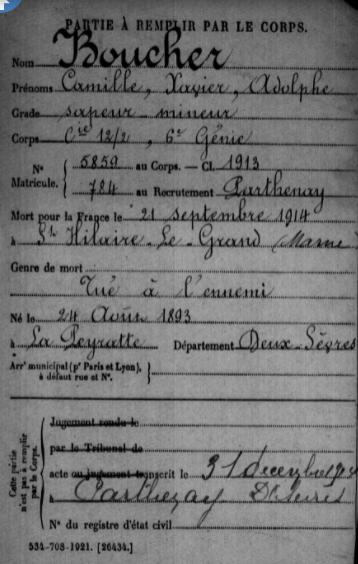 PARTIE À REMPLIR PAR LE CORPS.
Nom Boucher
Prénoms Camille, Xavier, Adolphe
Grade sapeur-mineur
Corps Cie 12/2, 6e Génie
N° Matricule. { 5859 au Corps. — Cl. 1913
784 au Recrutement Parthenay
Mort pour la France le 21 septembre 1914
à St Hilaire-Le-Grand Marne
Genre de mort
Tué à l'ennemi
Né le 24 Août 1893
à La Peyratte Département Deux-Sèvres
Arrt municipal (pr Paris et Lyon), à défaut rue et N°. }
Cette partie n'est pas à remplir par le Corps.
Jugement rendu le
par le Tribunal de
acte ou jugement transcrit le 31 décembre
à Parthenay Dx Sèvres
N° du registre d'état civil
534-708-1921. [26434.]